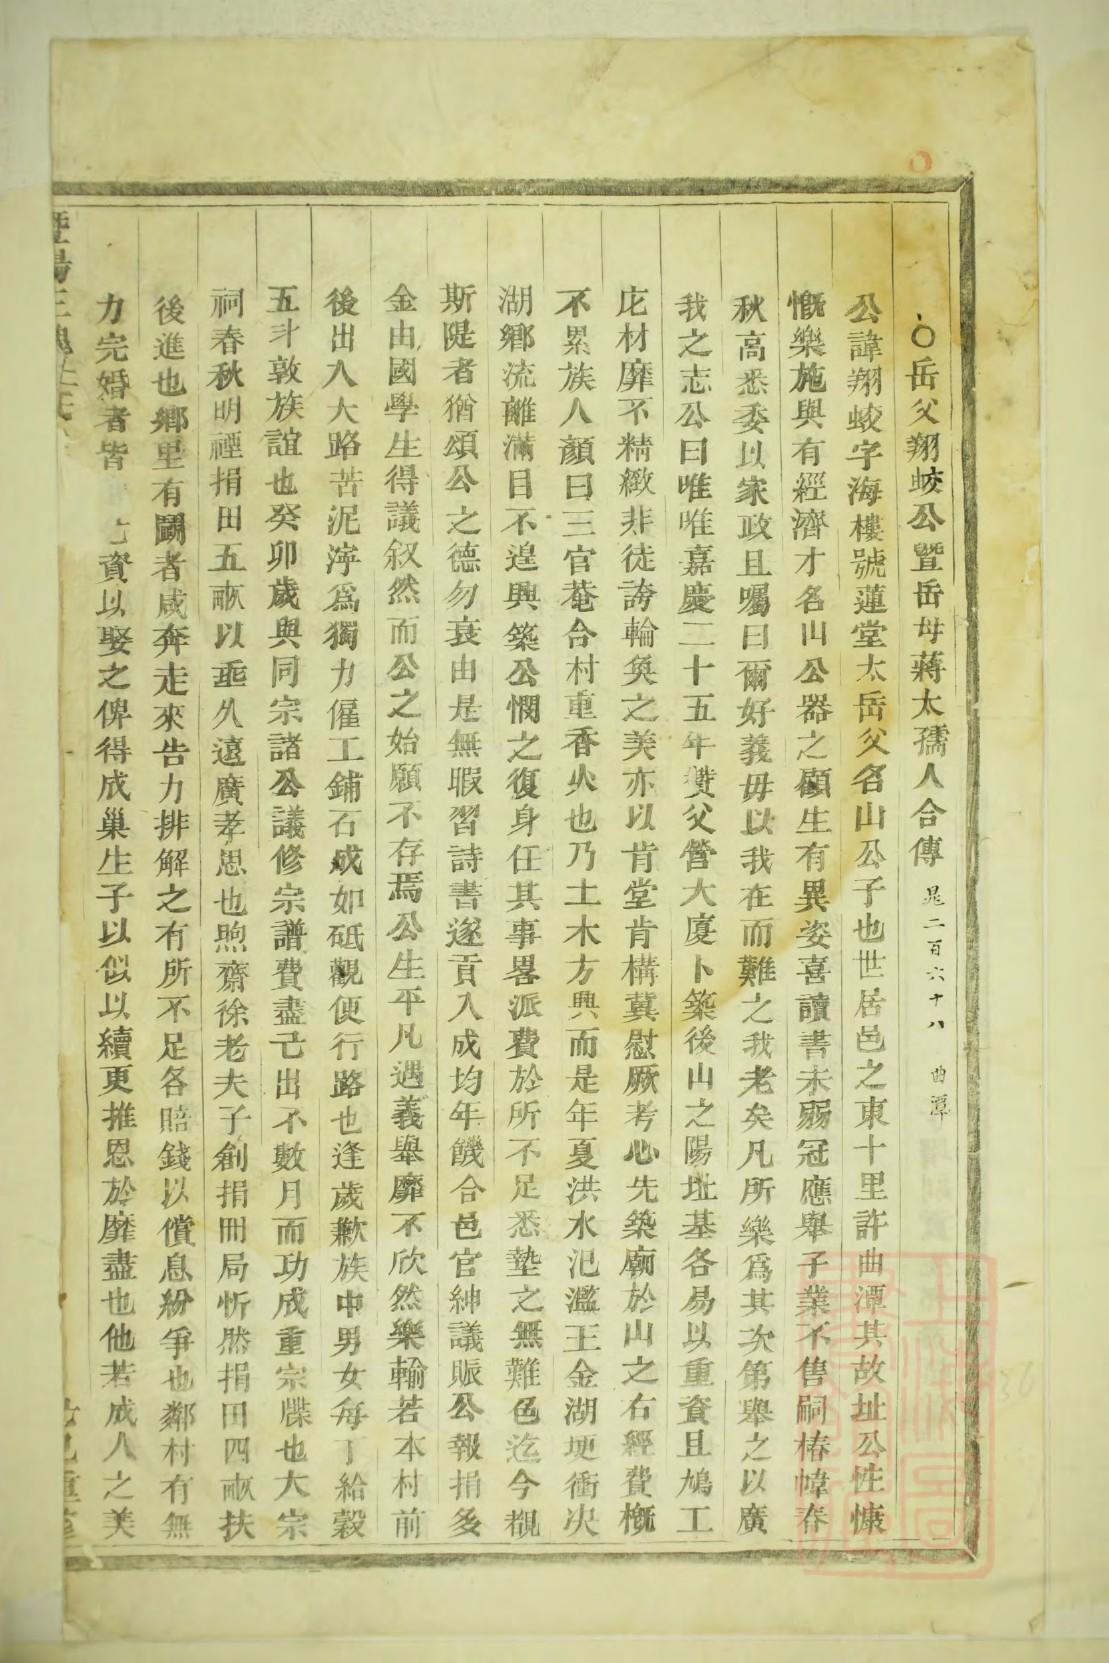 ○岳父翔蛟公暨岳母蔣太孺人合傳 晁二百六十八 曲潭
公諱翔蛟字海樓號蓮堂太岳父名山公子也世居邑之東十里許曲潭其故址公性慷
慨樂施與有經濟才名山公器之顧生有異姿喜讀書未弱冠應舉子業不售嗣椿幃春
秋高悉委以家政且囑曰爾好義毋以我在而難之我老矣凡所樂爲其次第舉之以廣
我之志公曰唯唯嘉慶二十五年贊父營大廈卜築後山之陽址基各易以重資且鳩工
庀材靡不精緻非徒誇輪奐之美亦以肯堂肯構冀慰厥考心先築廟於山之右經費概
不累族人顏曰三官菴合村重香火也乃土木方興而是年夏洪水氾濫王金湖埂衝决
湖鄉流離滿目不遑興築公憫之復身任其事畧派費於所不足悉墊之無難色迄今覩
斯隄者猶頌公之德勿衰由是無暇習詩書遂貢入成均年饑合邑官紳議賑公報捐多
金由國學生得議叙然而公之始願不存焉公生平凡遇義舉靡不欣然樂輸若本村前
後出入大路苦泥濘爲獨力僱工鋪石成如砥觀便行路也逢歲歉族中男女每丁給穀
五斗敦族誼也癸卯歲與同宗諸公議修宗譜費盡己出不數月而功成重宗牒也大宗
祠春秋明禋捐田五畝以垂久遠廣孝思也煦齋徐老夫子創捐冊局忻然捐田四畝扶
後進也鄉里有鬬者咸奔走來告力排解之有所不足各賠錢以償息紛爭也鄰村有無
力完婚者皆資以娶之俾得成巢生子以似以續更推恩於靡盡也他若成人之美